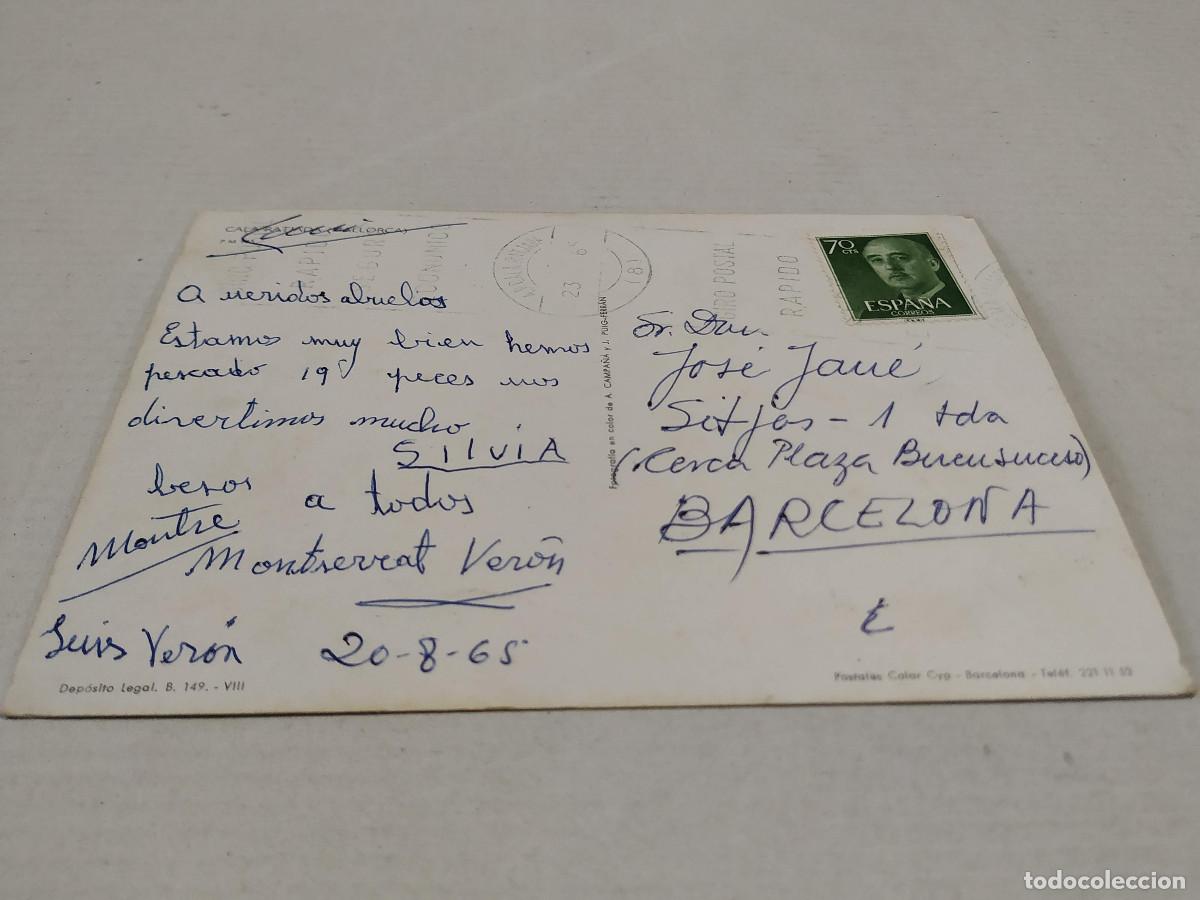 CALA RATJADA (MALLORCA)
RAPIDO
23
65
(8)
GIRO POSTAL
RAPIDO
70 CTS
ESPAÑA
CORREOS
A ueridos abuelos
Estamos muy bien hemos
pescado 19 peces nos
divertimos mucho
SILVIA
besos a todos
Montse
Montserrat Verón
Luis Verón 20-8-65
Depósito Legal. B. 149. - VIII
Fotografía en color de A. CAMPAÑA y J. PUIG-FERRÁN
Sr. Don
José Jané
Sitjas - 1 tda
(Cerca Plaza Buensuceso)
BARCELONA
Postales Color Cyp - Barcelona - Teléf. 221 11 52
todocoleccion